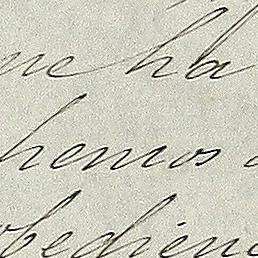 me ha
hemos
obedienc